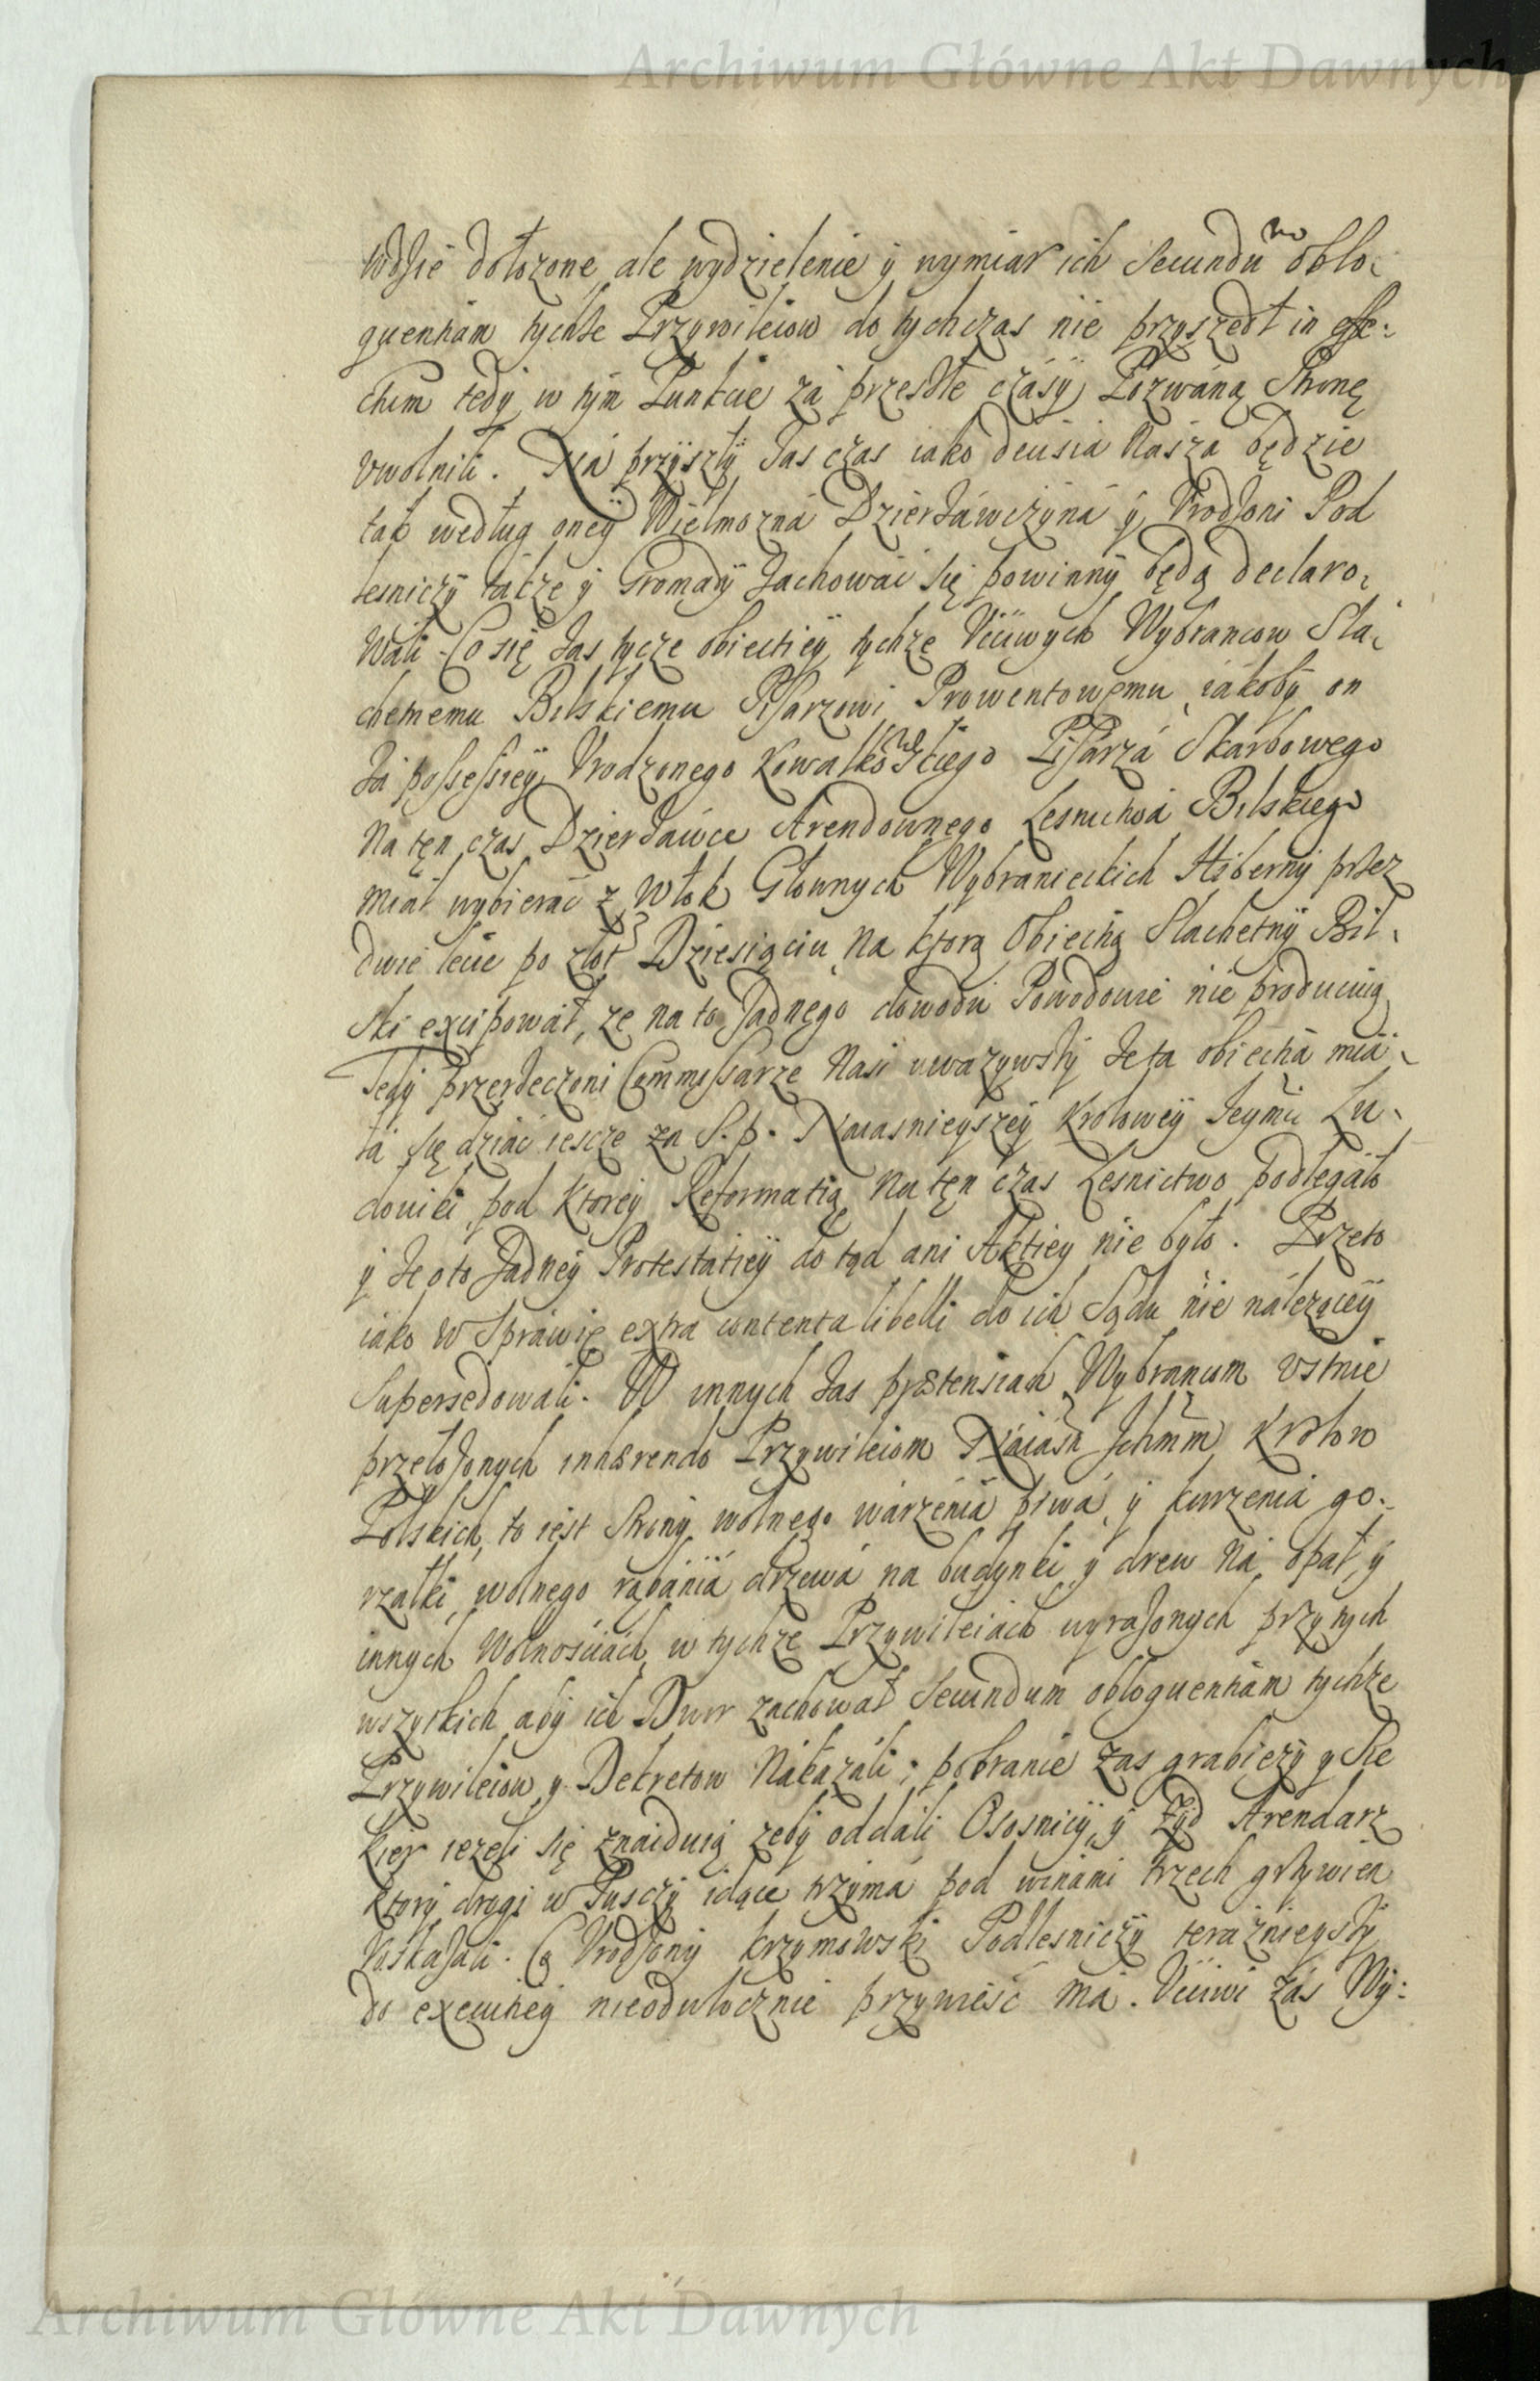 Archiwum Główne Akt Dawnych
wosie dołozone, ale wydzielenie y wymiar ich Secundum oblo-
quentiam tychże Przywileiow do tychczas nie przyszedł in effe-
ctum tedy w tym Punkcie za przeszłe czasy Pozwaną Stronę
vwolnili. Na przyszły zas czas iako decisia Nasza będzie
tak według oney Wielmozna Dzierżawczyna y Vrodzoni Pod
lesniczy także y Gromady Zachować się powinny będą declaro-
wali. Co się zas tycze obiectiey tychże Vcciwych Wybrancow Sla-
chetnemu Bilskiemu Pisarzowi Prowentowemu, iakoby on
Za possessiey Vrodzonego Kowalkowskiego Pisarza Skarbowego
Na ten czas Dzierżawce Arendownego Lesnictwa Bilskiego
miał wybierać z Włok Głownych Wybranieckich Hiberny przez
dwie lecie po złot Dziesiąciu, Na ktorą Obiectią Slachetny Bil-
ski excipował, ze na to Zadnego dowodu Powodowie nie producuią
Tedy przerzeczoni Commissarze Nasi uwazywszy Ze ta obiectia mia-
ła się dziać iescze za S. p. Naiasnieyszey Krolowey Jeymci Lu-
dowici, pod ktorey Reformatią Na ten czas Lesnictwo podlegało
y Ze o to Zadney Protestatiey do tąd ani Aktiey nie było. Przeto
iako w Sprawie extra contenta libelli do ich Sądu nie nalezącey
Supersedowali. W innych zas prætensiach Wybrancom vstnie
przełozonych inhærendo Przywileiom Naiasn Ichmm Krolow
Polskich, to iest Strony wolnego warzenia piwa, y kurzenia go-
rzałki, wolnego rąbania drzewa na budynki y drew Na opał, y
innych Wolnościach w tychze Przywileiach wyrazonych przy tych
wszytkich aby ich Dwor zachował Secundum obloquentiam tychże
Przywileiow y Dekretow Nakazali; pobranie zas grabieży y Sie
kier iezeli się znaiduią zeby oddali Ososnicy, y Żyd Arendarz
ktory drogi w Pusczy idące trzyma pod winami trzech grzywien
Vskazali. Co Vrodzony Krzymowski Podlesniczy teraznieyszy
do executiey nieodwłocznie przywieść ma. Vcciwi zas Wy-
Archiwum Główne Akt Dawnych